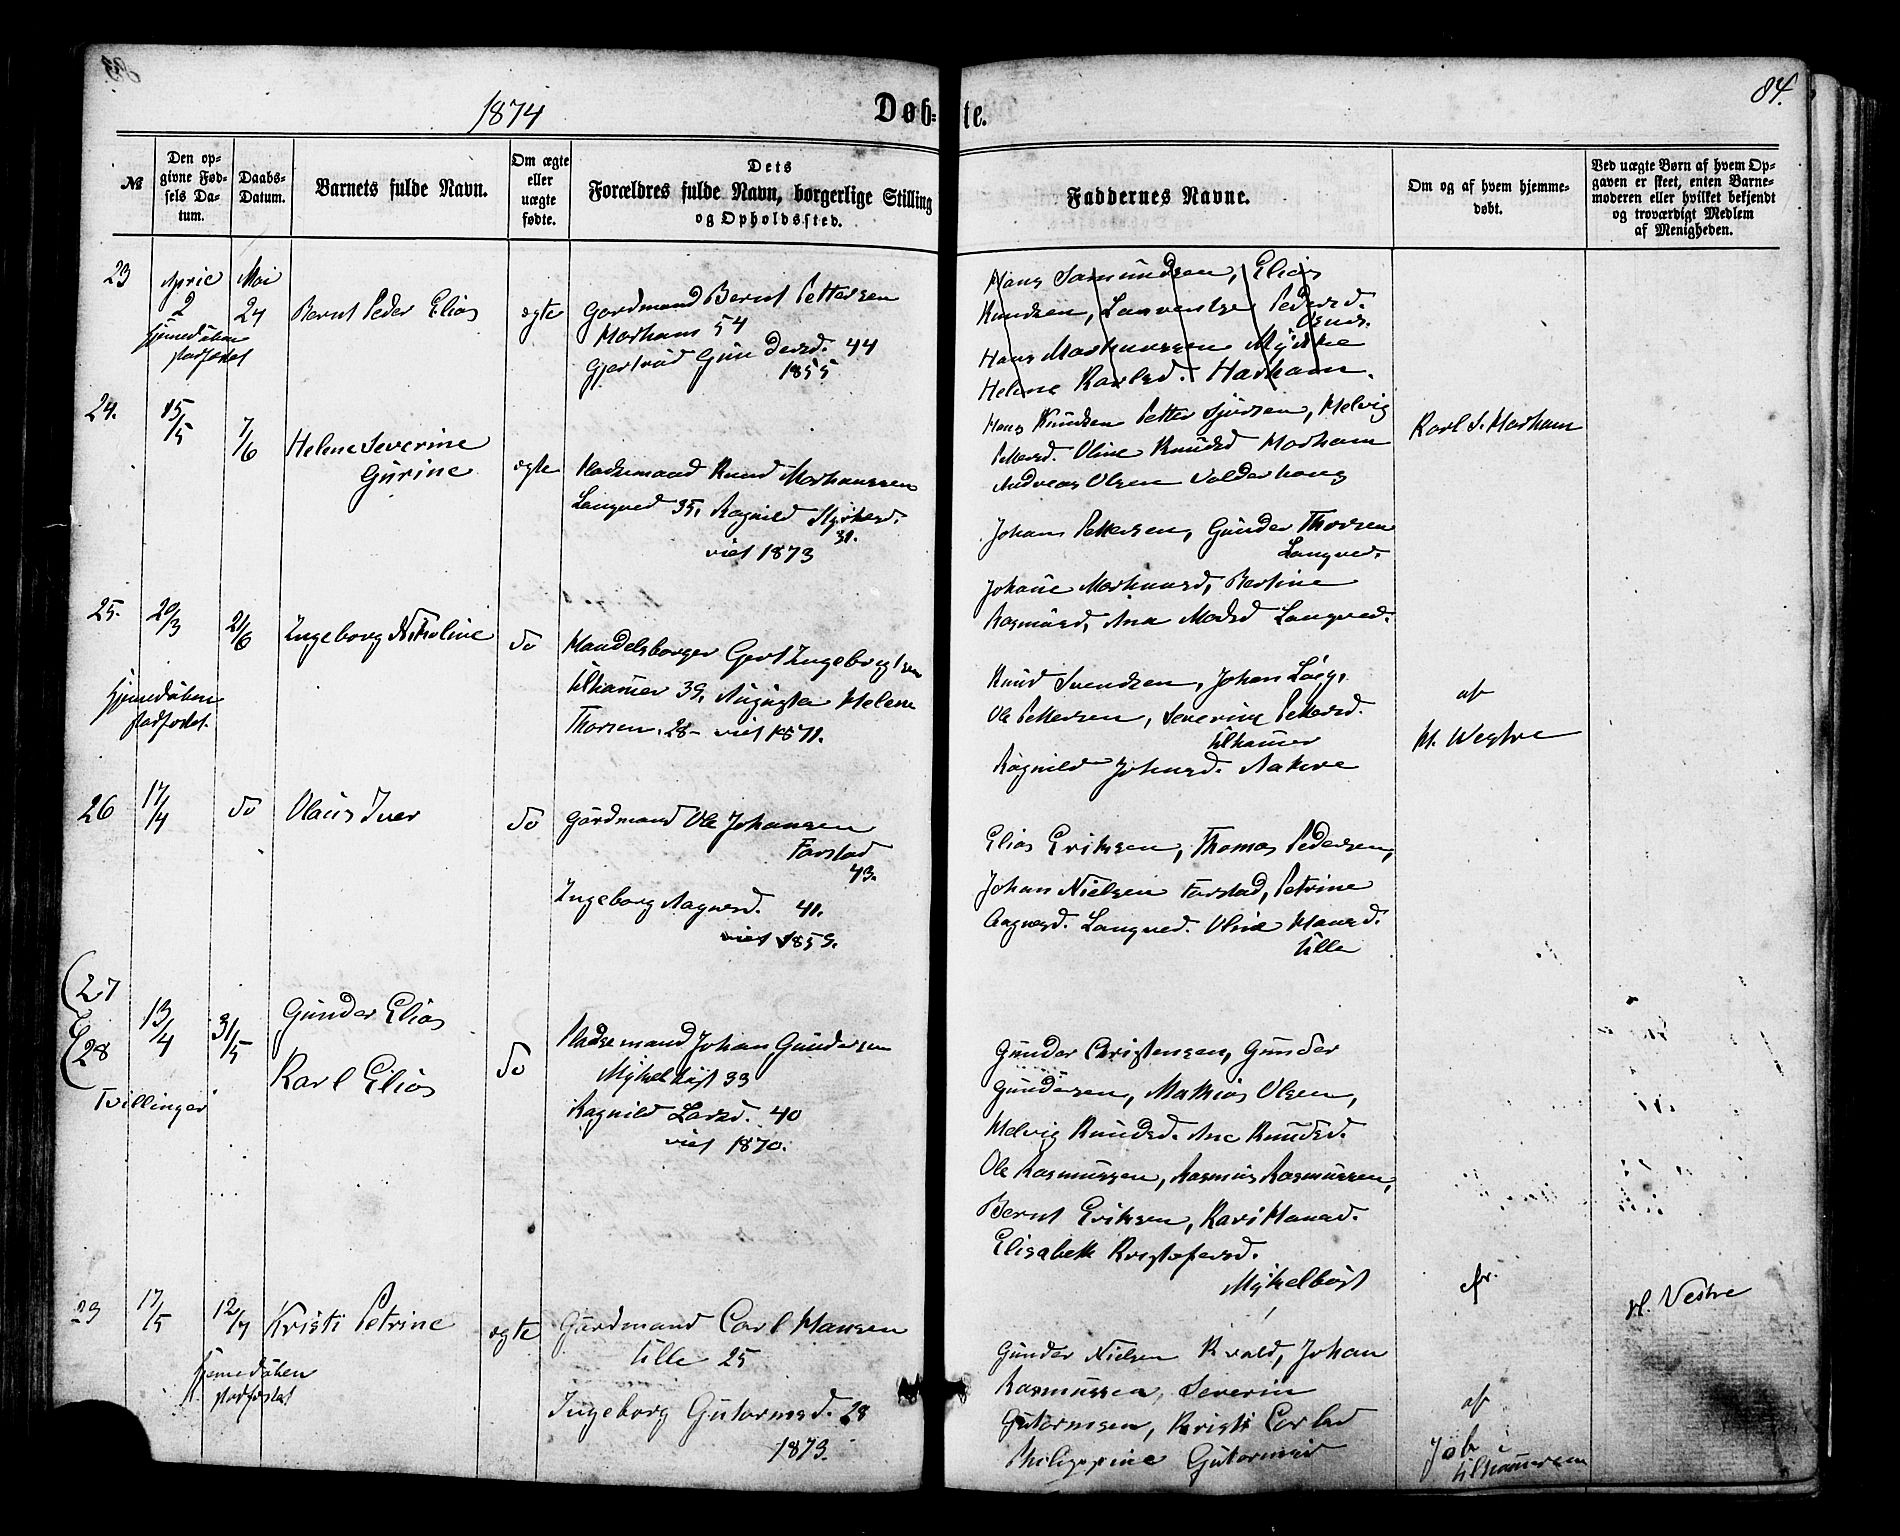 84.
1874
Døb-
te.
№
Den op-
givne Fød-
sels Da-
tum.
Daabs-
Datum.
Barnets fulde Navn.
Om ægte
eller
uægte
fødte.
Dets
Forældres fulde Navn, borgerlige Stilling
og Opholdssted.
Faddernes Navne.
Om og af hvem hjemme-
døbt.
Ved uægte Børn af hvem Op-
gaven er skeet, enten Barne-
moderen eller hvilket bekjendt
og troværdigt Medlem
af Menigheden.
23
April
2
Mai
24
Bernt Peder Elias
ægte
Gardmand Bernt Pettersen
Harhams 54
Gjertrud Gundersd. 44
1855
Hans Samundsen, Elias
Knudsen, Laurentse Pedersd.
Hans Markussen Myhre
Helene Karlsd. Harham.
24.
15/5
7/6
Helene Severine
Gurine
ægte
Pladsemand Knud Markussen
Langved 35, Ragnild
31.
viet 1873
Hans Knudsen Petter Sjursen, Helvig
Pettersd. Oline Knudsd Harham
Andreas Olsen Valderhaug
Karl S. Harham
Johans Pettersen, Gunder Thorsen
Langved.
Johane Markussd, Bertine
Rasmusd, Ana Madsd Langved.
25.
20/3
21/6
Ingeborg Nikoline
do
Handelsborger Gert Ingebrigtsen
Ulhamer 39, Augusta Helene
Thorsen, 28- viet 1871.
Knud Svendsen, Johan
Ole Pettersen, Severine Pettersd.
Ulhamer
Ragnild Johnsd. Aakre
af
H. Westre
26
17/4
do
Olaus Iver
do
Gardmand Ole Johansen
Farstad
43.
Ingeborg Aagesd. 41.
viet 1859.
Elias Eriksen, Thomas Pedersen,
Johan Nielsen Farstad, Petrine
Langved. Oline Hansd.
Ulla
27
28
Tvillinger
13/4
31/5
Gunder Elias
Karl Elias
do
Pladsemand Johan Gundersen
Myhelbust 33
Ragnild Larsd. 40
viet 1870.
Gunder Christensen, Gunder
Gundersen, Mathias Olsen,
Helvig Knudsd. Ane Knudsd.
Ole Rasmussen, Rasmus Rasmussen,
Bernt Eriksen, Kari Hansd.
Elisabeth Kristofersd.
Myhelbust
29
17/5
12/7
Kristi Petrine
ægte
Gardmand Carl Hansen
Ulle 25
Ingeborg Gutormsd. 28
1873.
Gunder Nielsen Kvald, Johan
Rasmussen, Severin
Gutormsen, Kristi Carlsd
Philippine Gutormsd
af
H. Vestre